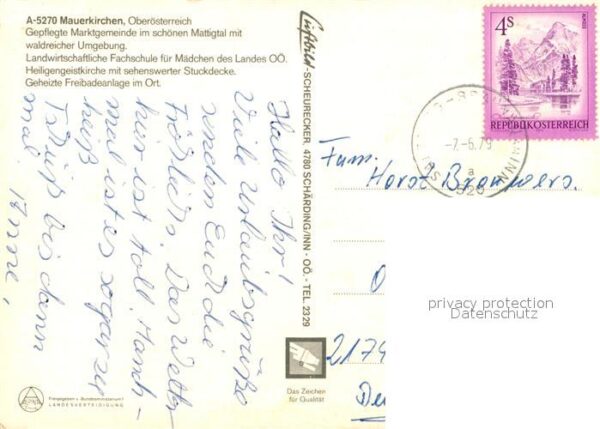 A-5270 Mauerkirchen, Oberösterreich
Gepflegte Marktgemeinde im schönen Mattigtal mit
waldreicher Umgebung.
Landwirtschaftliche Fachschule für Mädchen des Landes OÖ.
Heiligengeistkirche mit sehenswerter Stuckdecke.
Geheizte Freibadeanlage im Ort.
Hallo Ihr!
Viele Urlaubsgrüße
senden Euch die
Das Wetter
hier ist toll. Manch-
mal ist es sogar zu
heiß
Tschüß bis dann
mal.
Änne,
Luftbild-SCHEURECKER, 4780 SCHÄRDING/INN - OÖ. - TEL. 2329
4 S
REPUBLIK ÖSTERREICH
-7.-6.79
a
Fam.
Horst
2179
Das Zeichen
für Qualität
Freigegeben v. Bundesministerium f.
LANDESVERTEIDIGUNG
privacy protection
Datenschutz